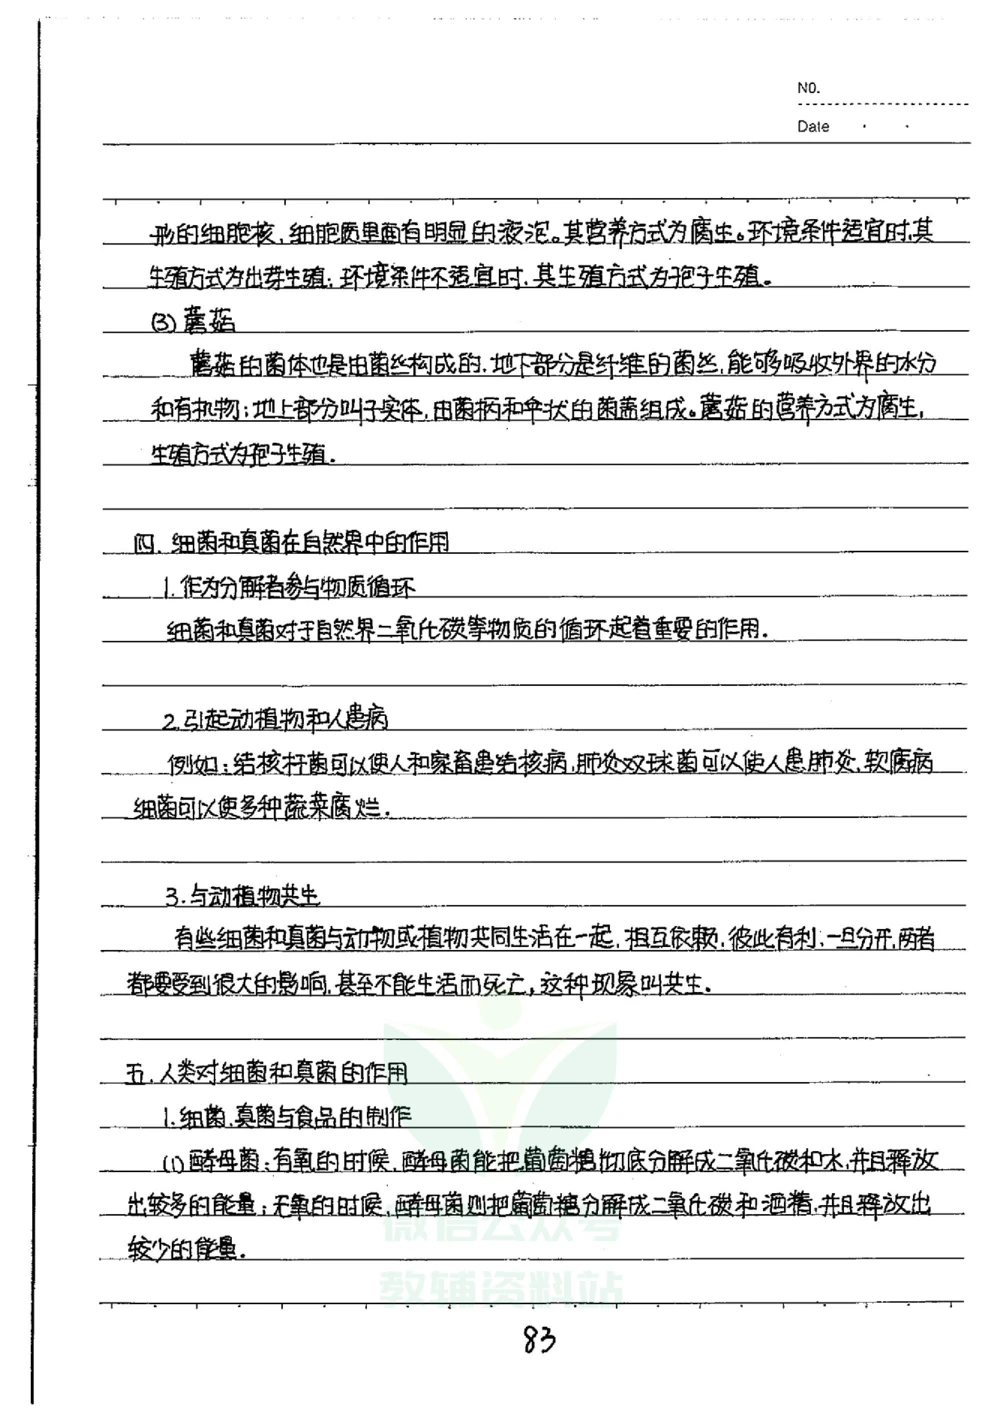 NO.
Date
形的细胞核,细胞质里面有明显的液泡。其营养方式为腐生。环境条件适宜时,其
生殖方式为出芽生殖;环境条件不适宜时,其生殖方式为孢子生殖。
(3)蘑菇
蘑菇的菌体也是由菌丝构成的.地下部分是纤维的菌丝,能够吸收外界的水分
和有机物;地上部分叫子实体,由菌柄和伞状的菌盖组成。蘑菇的营养方式为腐生,
生殖方式为孢子生殖.
四.细菌和真菌在自然界中的作用
1.作为分解者参与物质循环
细菌和真菌对于自然界二氧化碳等物质的循环起着重要的作用.
2.引起动植物和人患病
例如:结核杆菌可以使人和家畜患结核病,肺炎双球菌可以使人患肺炎,软腐病
细菌可以使多种蔬菜腐烂.
3.与动植物共生
有些细菌和真菌与动物或植物共同生活在一起,相互依赖,彼此有利,一旦分开,两者
都要受到很大的影响,甚至不能生活而死亡,这种现象叫共生.
五.人类对细菌和真菌的作用
1.细菌.真菌与食品的制作
(1)酵母菌:有氧的时候,酵母菌能把葡萄糖彻底分解成二氧化碳和水,并且释放
出较多的能量;无氧的时候,酵母菌则把葡萄糖分解成二氧化碳和酒精,并且释放出
较少的能量.
微信公众号
教辅资料站
83